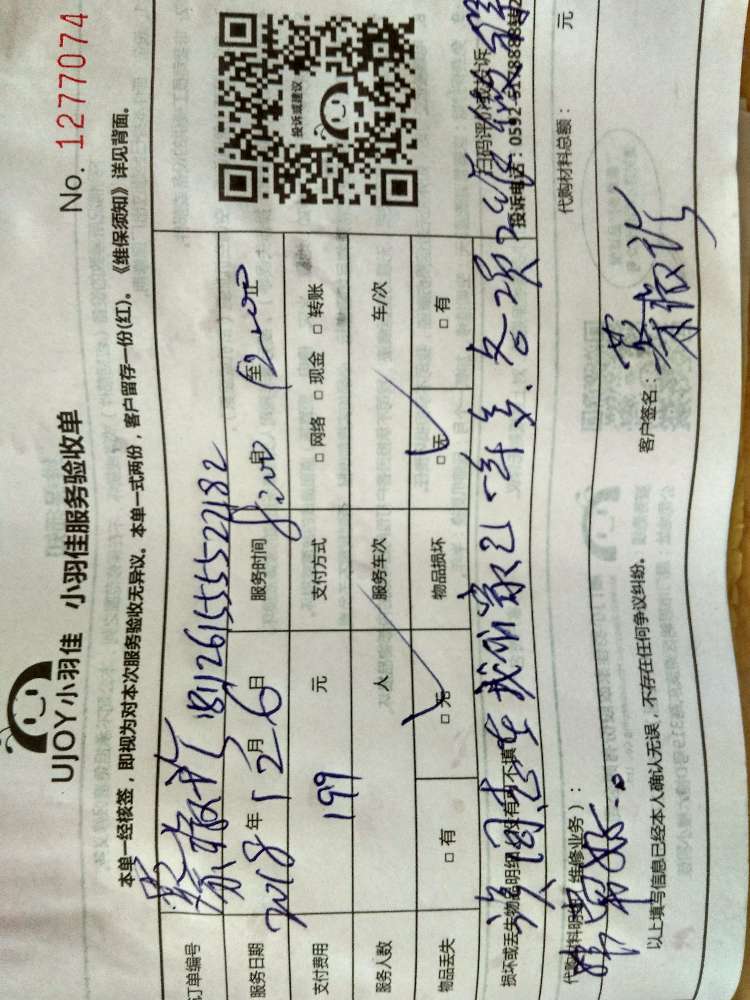 No. 1277074
UJOY小羽佳 小羽佳服务验收单
本单一经核签，即视为对本次服务验收无异议。本单一式两份，客户留存一份(红)。《维保须知》详见背面。
投诉或建议
扫码评价或投诉
投诉电话：0592-5
订单编号 1811261555522182
服务日期 2018年12月6日 服务时间 8:00 自 至 12:00 止
支付费用 199 元 支付方式 □ 网络 □ 现金 □ 转账
服务人数 人 服务车次 车/次
物品丢失 □ 有 □ 无 物品损坏 □ 无 □ 有
损坏或丢失物品明细（没有可不填）
该同志在我们家已一年多、各项工作做得
非常好。
代购材料明细（维修业务）： 代购材料总额： 元
以上填写信息已经本人确认无误，不存在任何争议纠纷。 客户签名：